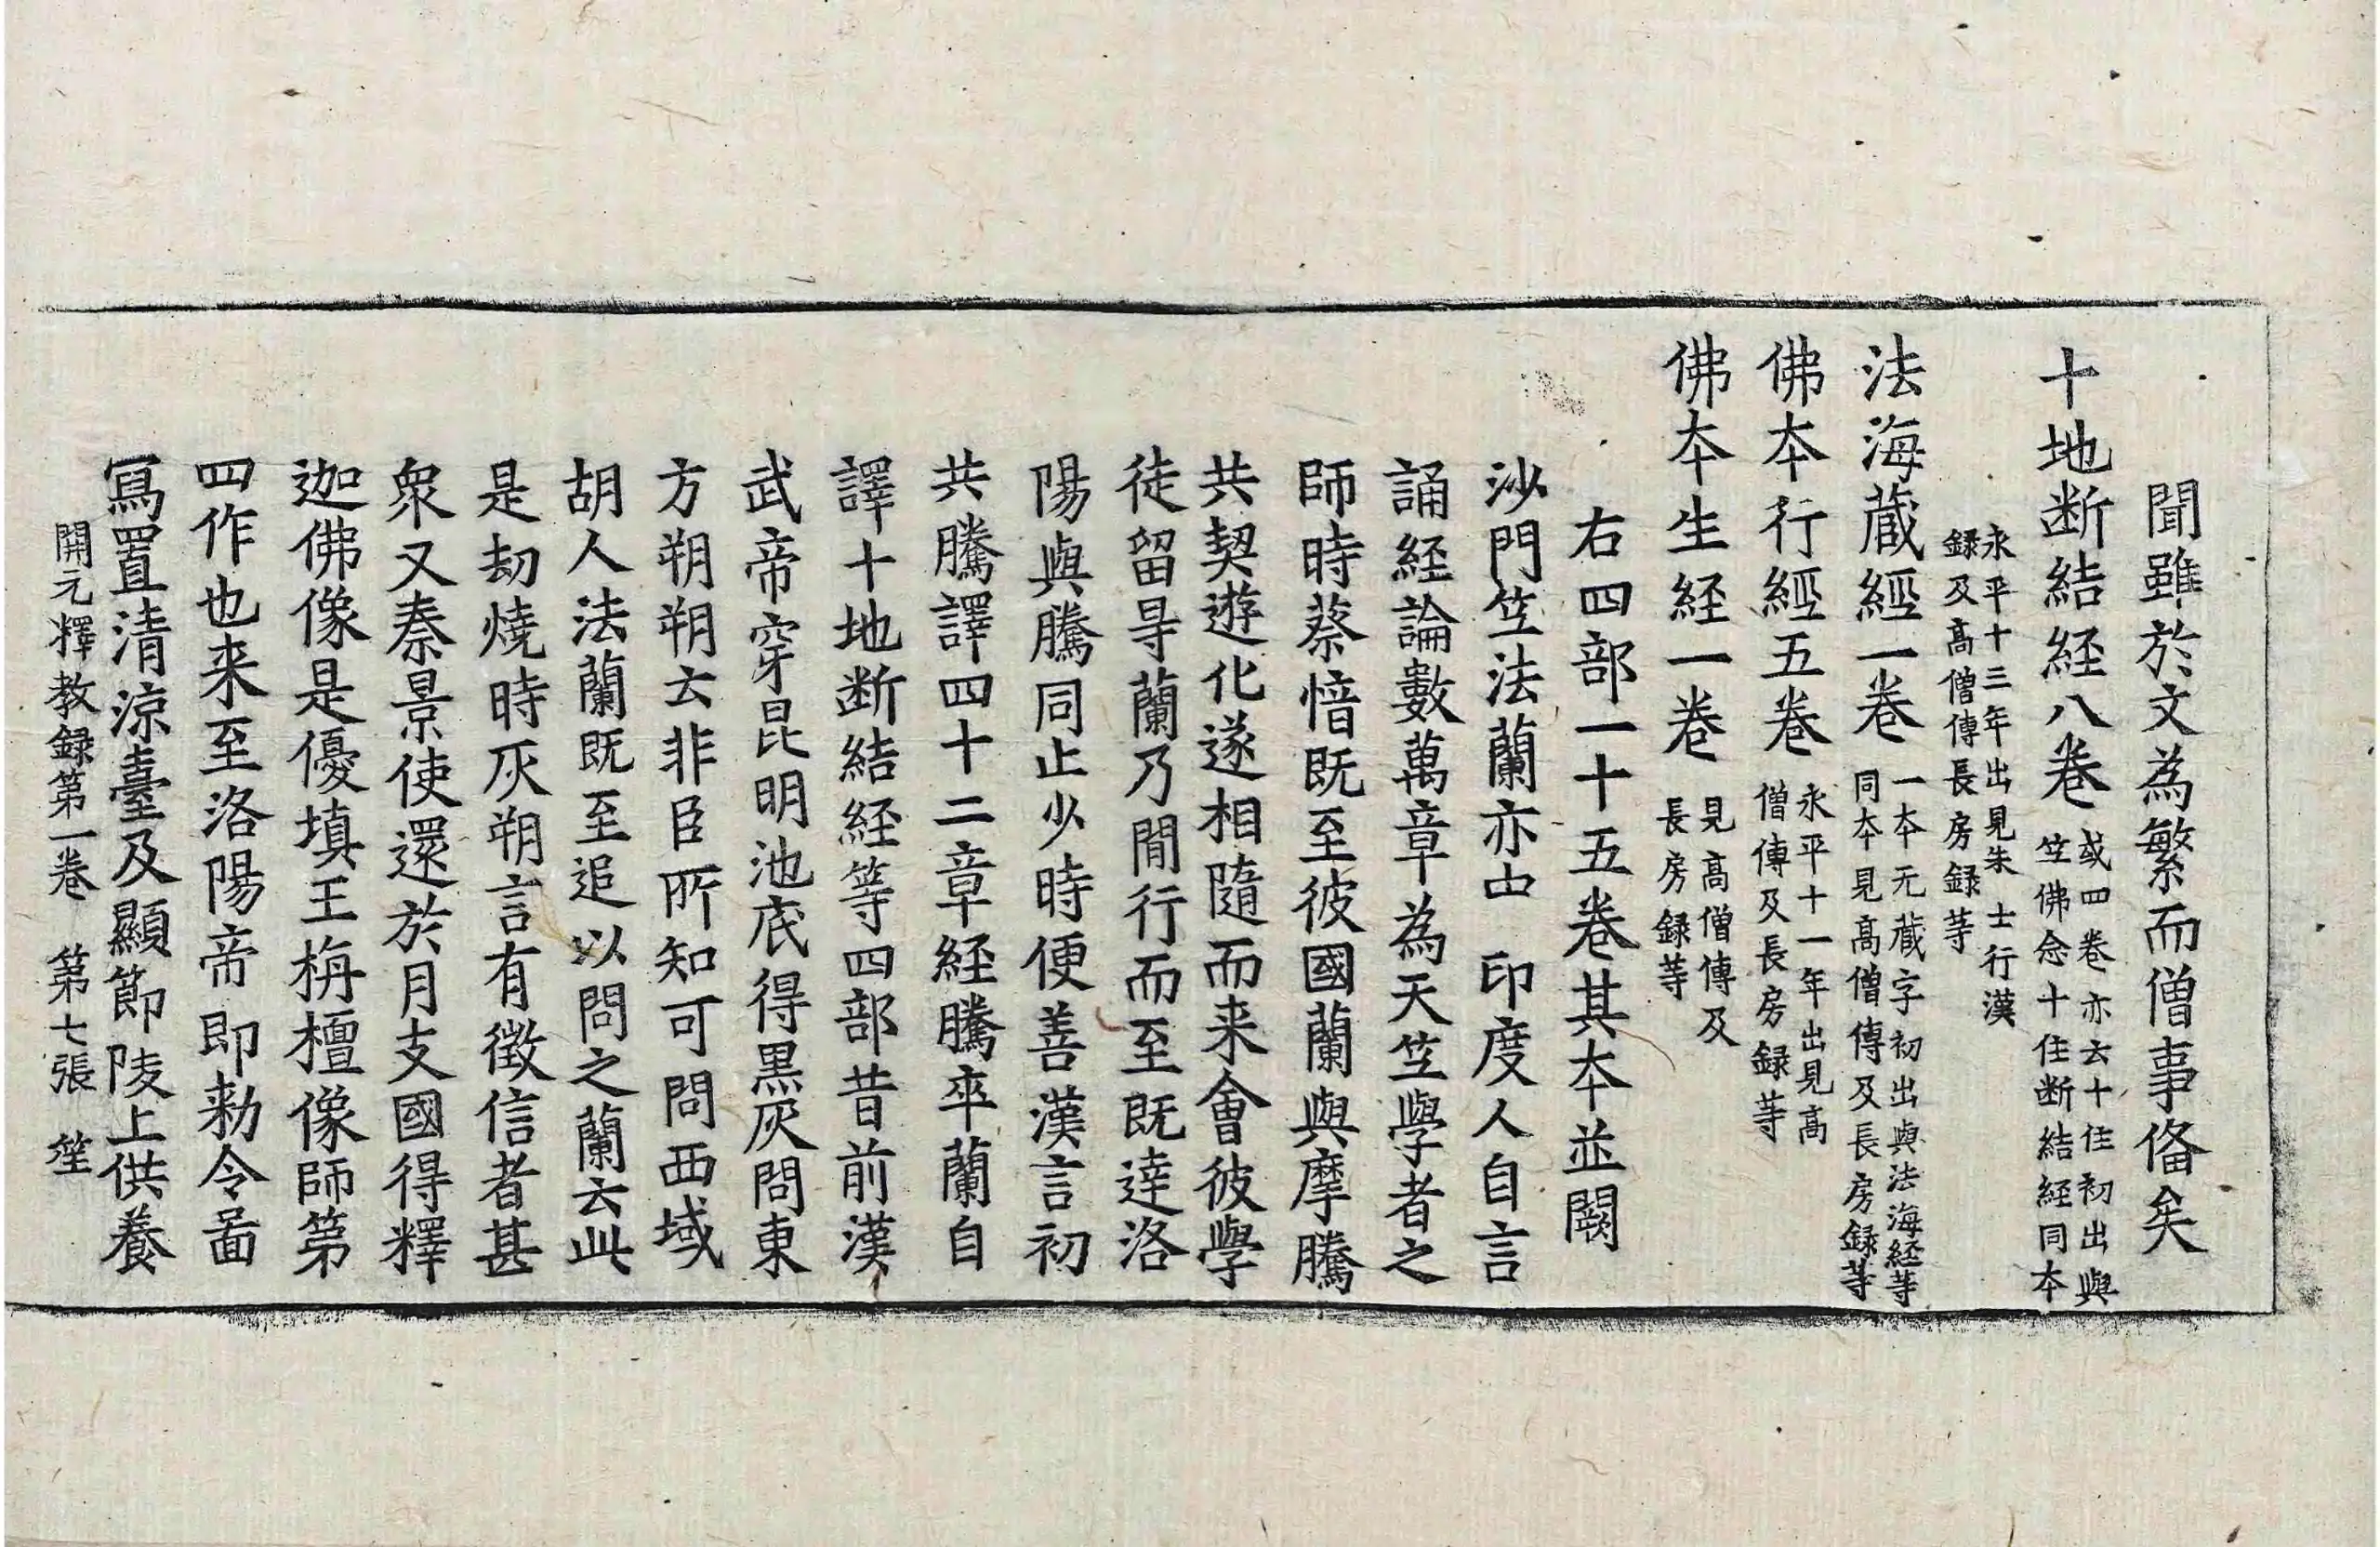 聞雖於文為繁而僧事俻矣
十地断結経八卷 或四卷亦云十住初出與
笁佛念十住断結経同本
永平十三年出見朱士行漢
録及髙僧傳長房録等
法海蔵經一卷 一本无蔵字初出與法海経等
同本見髙僧傳及長房録等
佛本行經五卷 永平十一年出見髙
僧傳及長房録等
佛本生経一卷 見髙僧傳及
長房録等
右四部一十五卷其本並闕
沙門笁法蘭亦中印度人自言
誦経論數萬章為天笁學者之
師時蔡愔既至彼國蘭與摩騰
共契遊化遂相隨而来會彼學
徒留㝵蘭乃間行而至既達洛
陽與騰同止少時便善漢言初
共騰譯四十二章経騰卒蘭自
譯十地断結経等四部昔前漢
武帝穿昆明池底得黒灰問東
方朔朔云非臣所知可問西域
胡人法蘭既至追以問之蘭云此
是劫燒時灰朔言有徵信者甚
衆又秦景使還於月支國得釋
迦佛像是優填王栴檀像師第
四作也来至洛陽帝即勑令啚
寫置清涼臺及顯節陵上供養
開元釋教録第一卷 第七張 笙